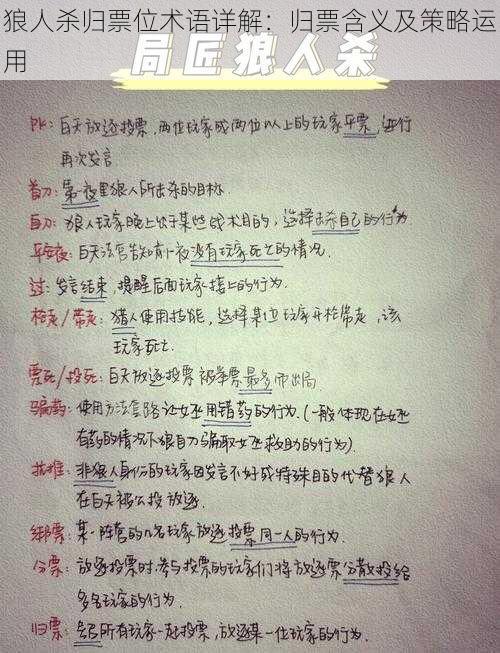 狼人杀归票位术语详解：归票含义及策略运
用
局匠狼人杀
PK：白天放逐投票，两位玩家或两位以上的玩家平票，进行
再次发言
首刀：第一夜里狼人所击杀的目标.
自刀：狼人玩家晚上出于某些战术目的，选择击杀自己的行为
平安夜：白天法官告知前一夜没有玩家死亡的情况.
过：发言结束，提醒后面玩家接上的行为.
枪走/带走：猎人使用技能，选择某位玩家开枪带走，该
玩家死亡.
票死/投死：白天放逐投票被举票最多而出局
骗药：使用方法套路让女巫用错药的行为.(一般体现在女巫
有药的情况下狼自刀骗取女巫救助的行为)
抗推：非狼人身份的玩家因发言不好或特殊目的代替狼人
在白天被公投放逐.
绑票：某一阵营的几名玩家放逐投票同一人的行为.
分票：放逐投票时.参与投票的玩家们将放逐票分散投给
多名玩家的行为.
归票：号召所有玩家一起投票，放逐某一位玩家的行为.